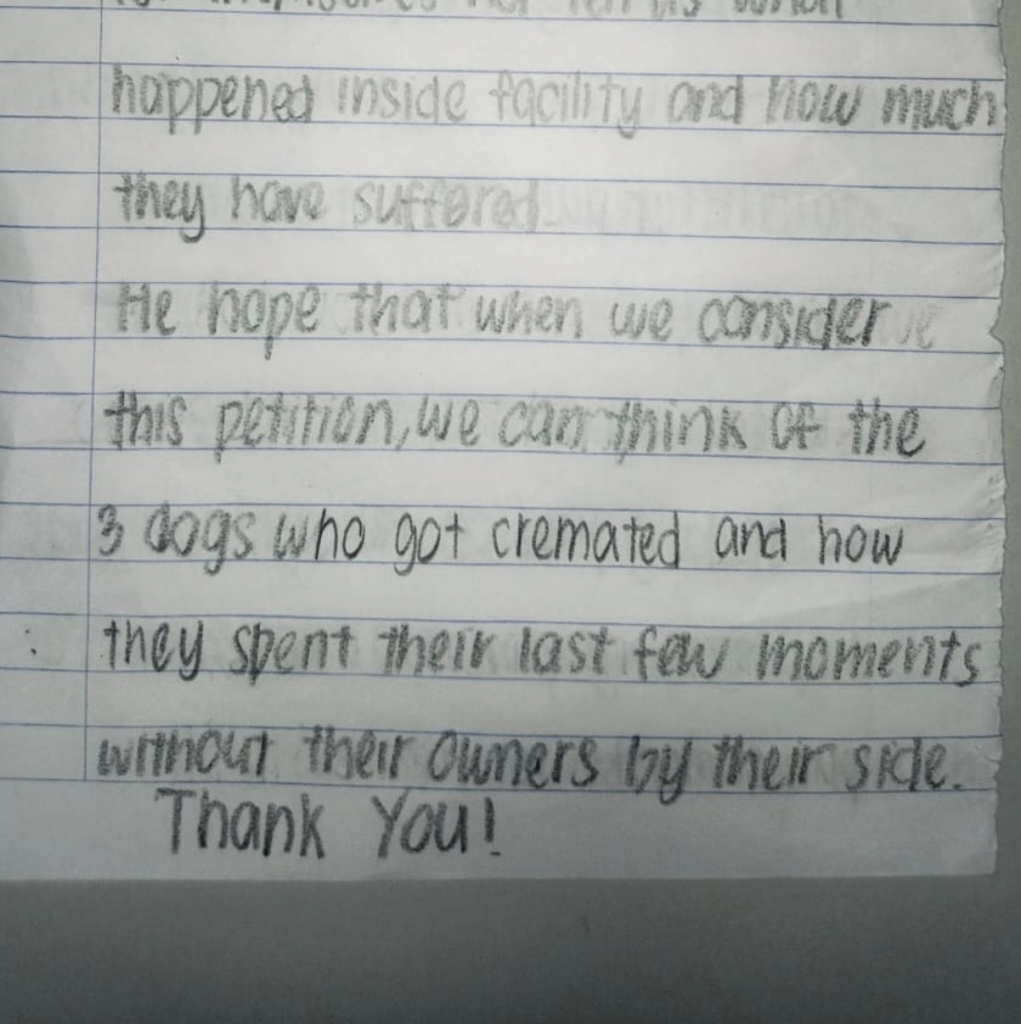 happened inside facility and how much
they have suffered
He hope that when we consider
this petition, we can think of the
3 dogs who got cremated and how
they spent their last few moments
without their owners by their side.
Thank You!